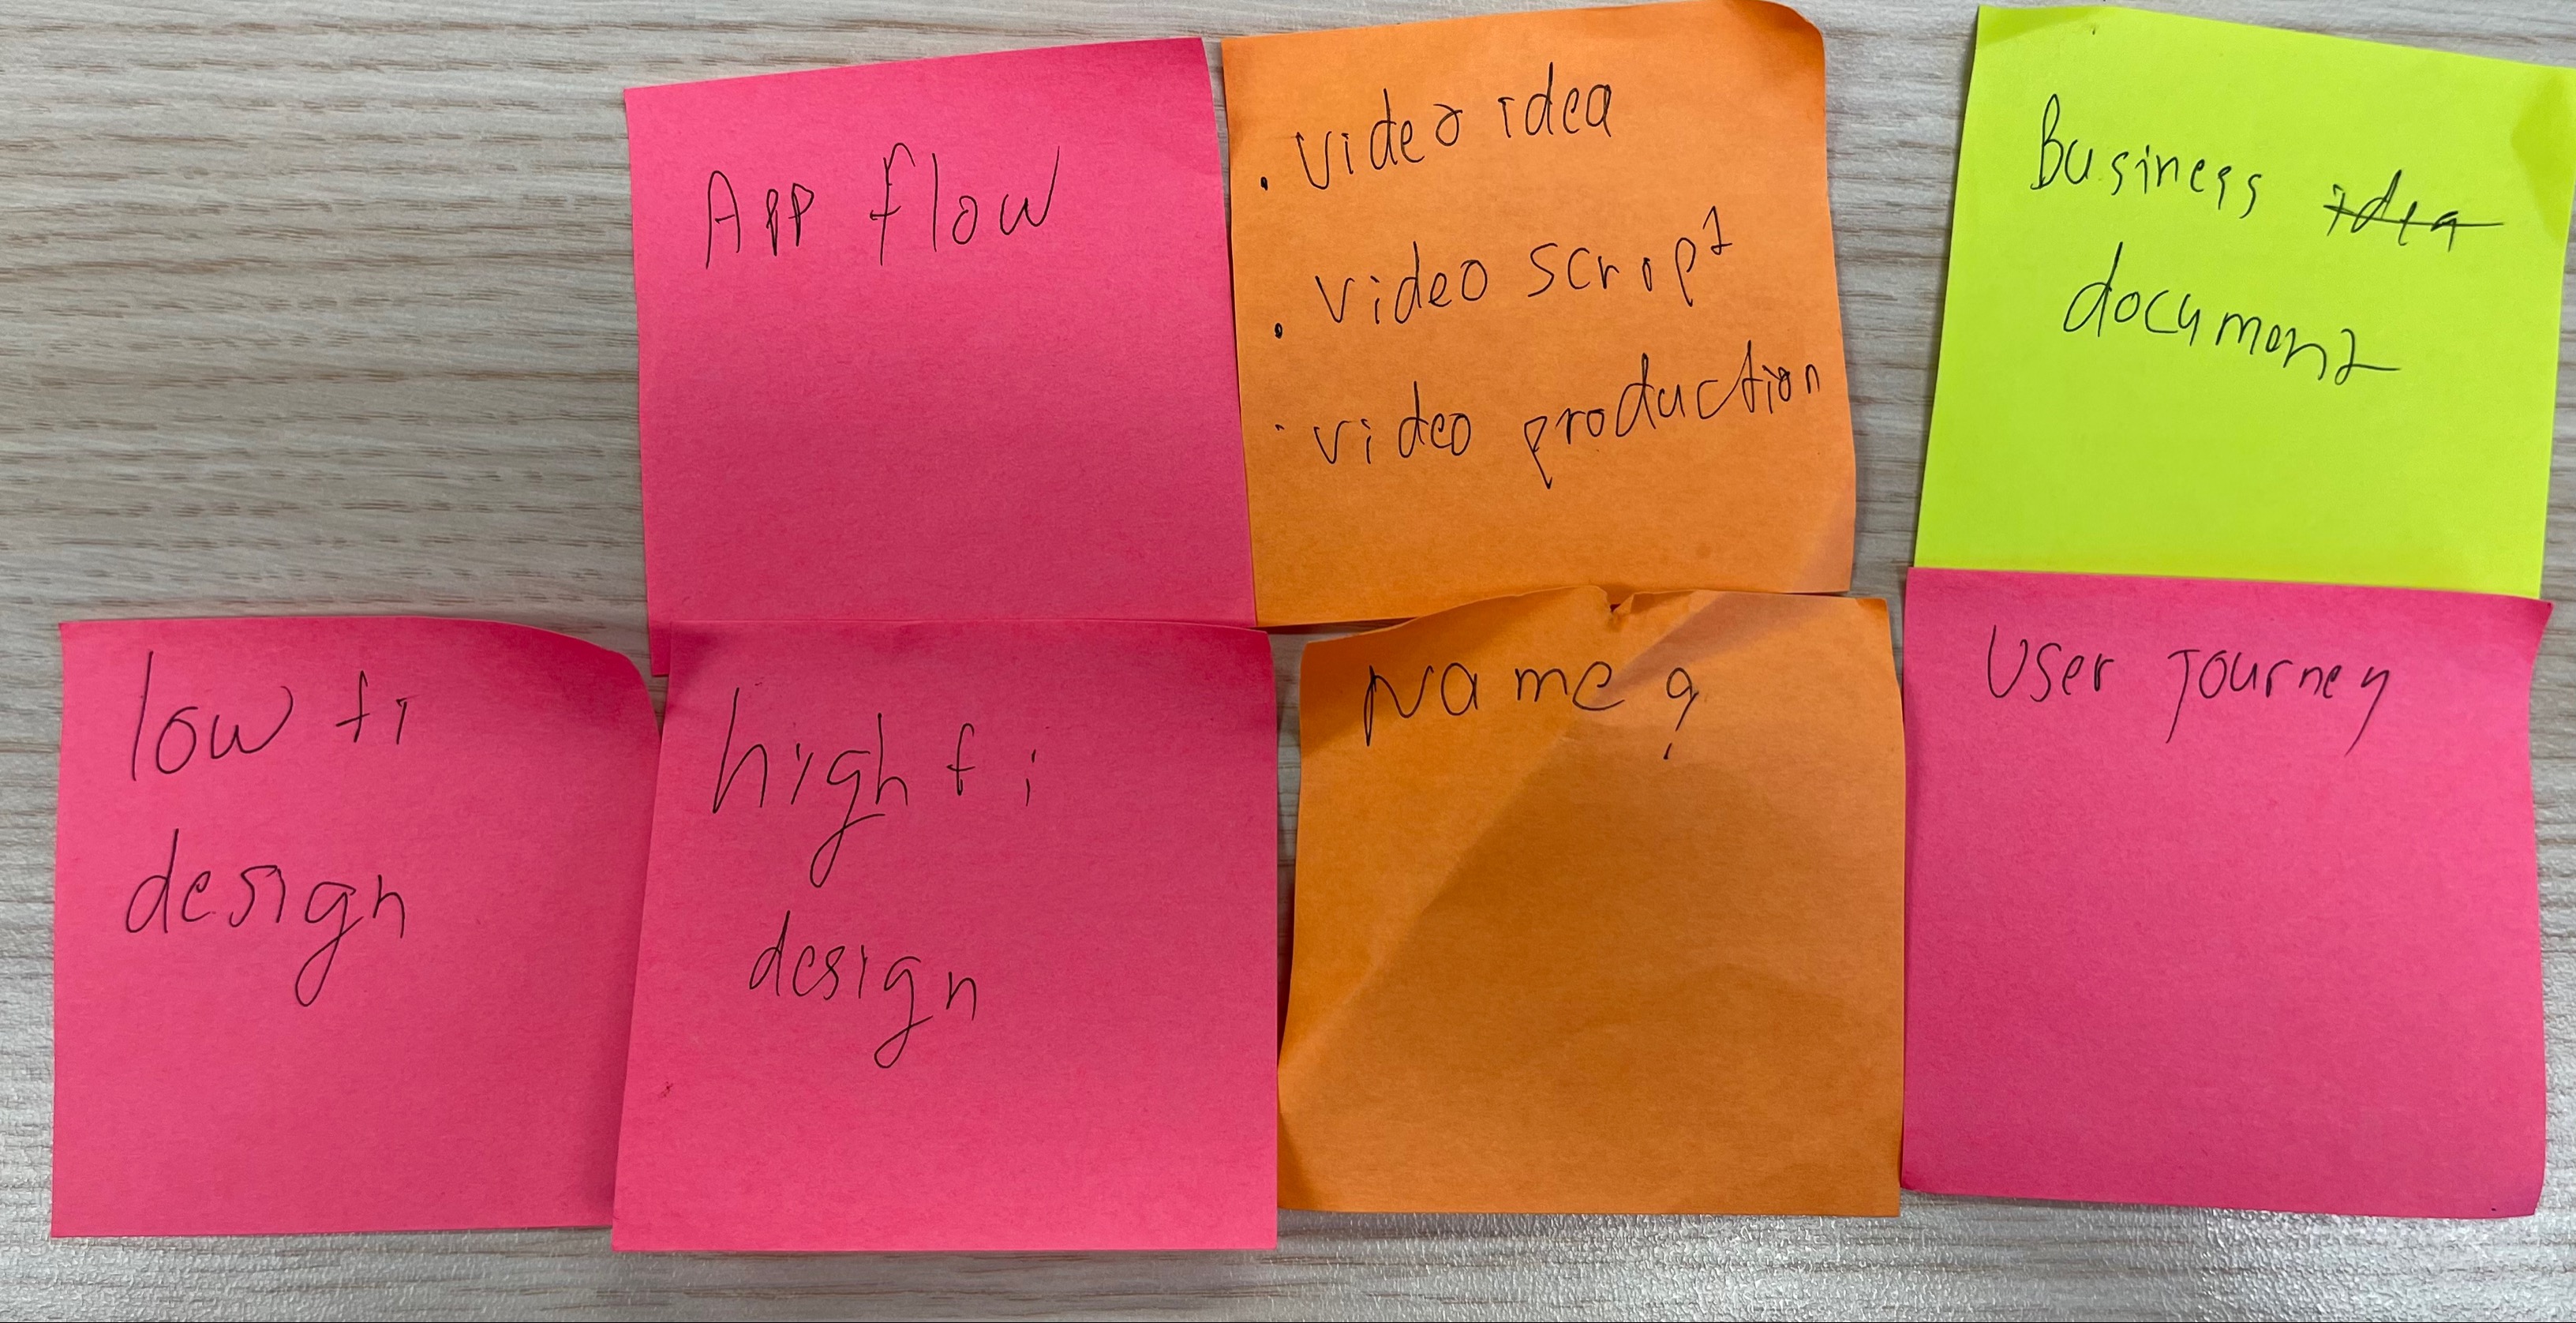 App flow
. video idea
. video script
. video production
Business idea
document
low fi
design
high fi
design
Name?
User Journey